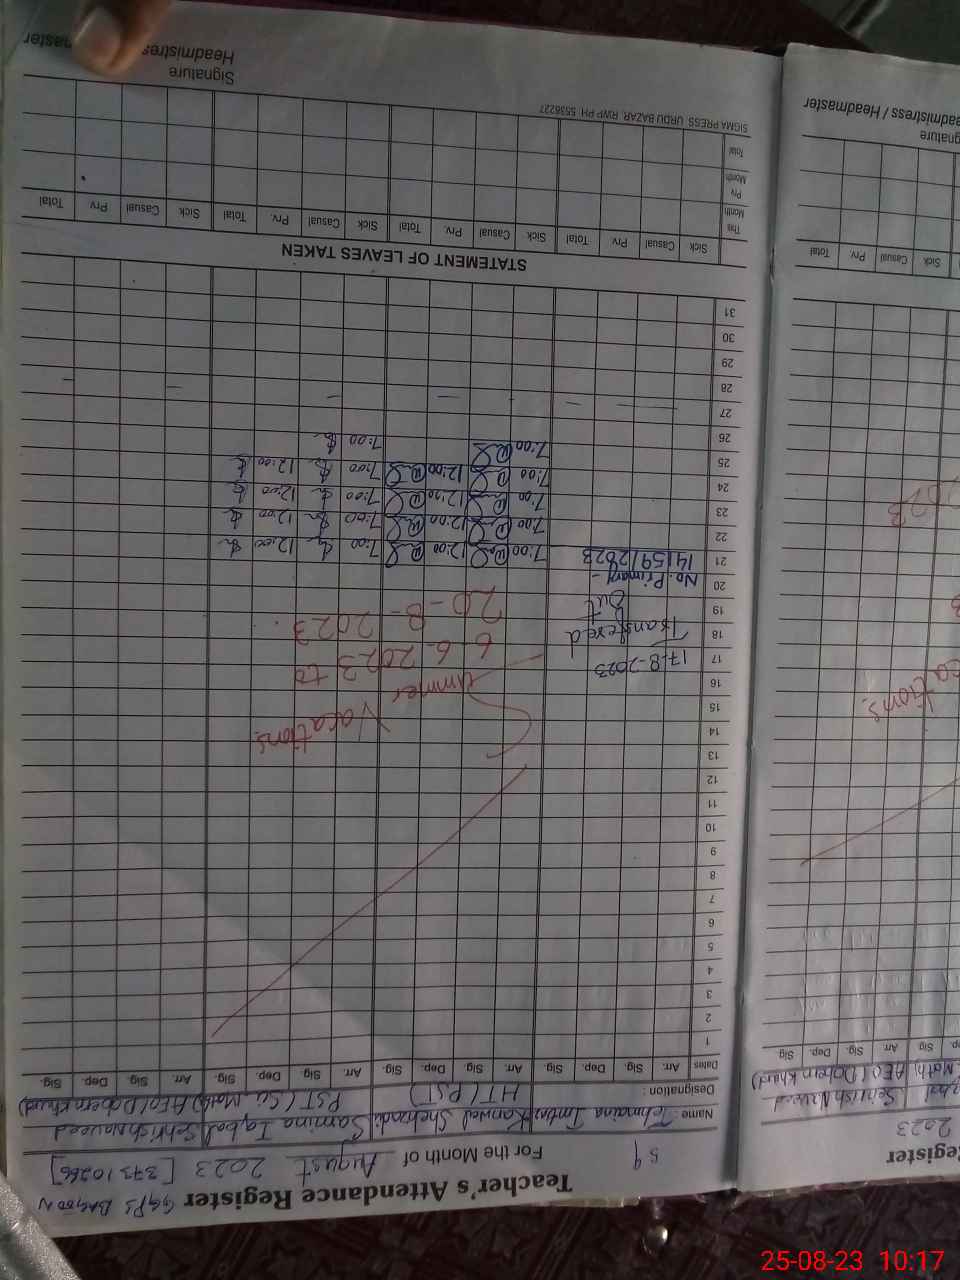 Teacher's Attendance Register GGPS BAGOON
59 For the Month of August 2023 [37310266]
Name: Tehmina Imtiaz Kanwal Shehzadi Samina Iqbal Sehrish Naveed
Designation: HT (PST) PST (Sci Math) AEO (Dobern Khurd)
Dates Arr. Sig Dep. Sig Arr. Sig. Dep. Sig. Arr. Sig. Dep. Sig. Arr. Sig. Dep. Sig.
1
2
3
4
5
6
7
8
9
10
11
12
13
14
15
16
17
18
19
20
21
22
23
24
25
26
27
28
29
30
31
Summer Vacations
6-6-2023 to
20-8-2023
17-8-2023
Transfered
Out
No. Primary-
14159/2023
7:00 12:00 7:00 12:00
7:00 12:00 7:00 12:00
7:00 12:00 7:00 12:00
7:00 12:00 7:00 12:00
7:00 7:00
STATEMENT OF LEAVES TAKEN
Sick Casual Prv Total Sick Casual Prv. Total Sick Casual Prv. Total Sick Casual Prv. Total
This Month
Prv Month
Total
SIGMA PRESS URDU BAZAR, RWP PH: 5536227
Signature
Headmistress
master
Register
2023
Sehrish Naveed
Math AEO (Dobern Khurd)
Sig Arr. Sig. Dep. Sig
Sick Casual Prv. Total
Headmistress / Headmaster
25-08-23 10:17